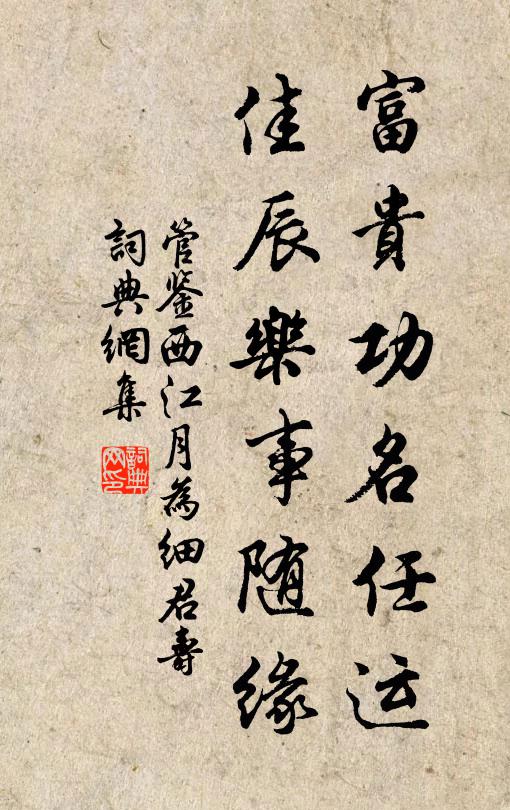 富貴功名任运
佳辰樂事随緣
管鉴西江月為细君壽
詞典網集
詞典网印